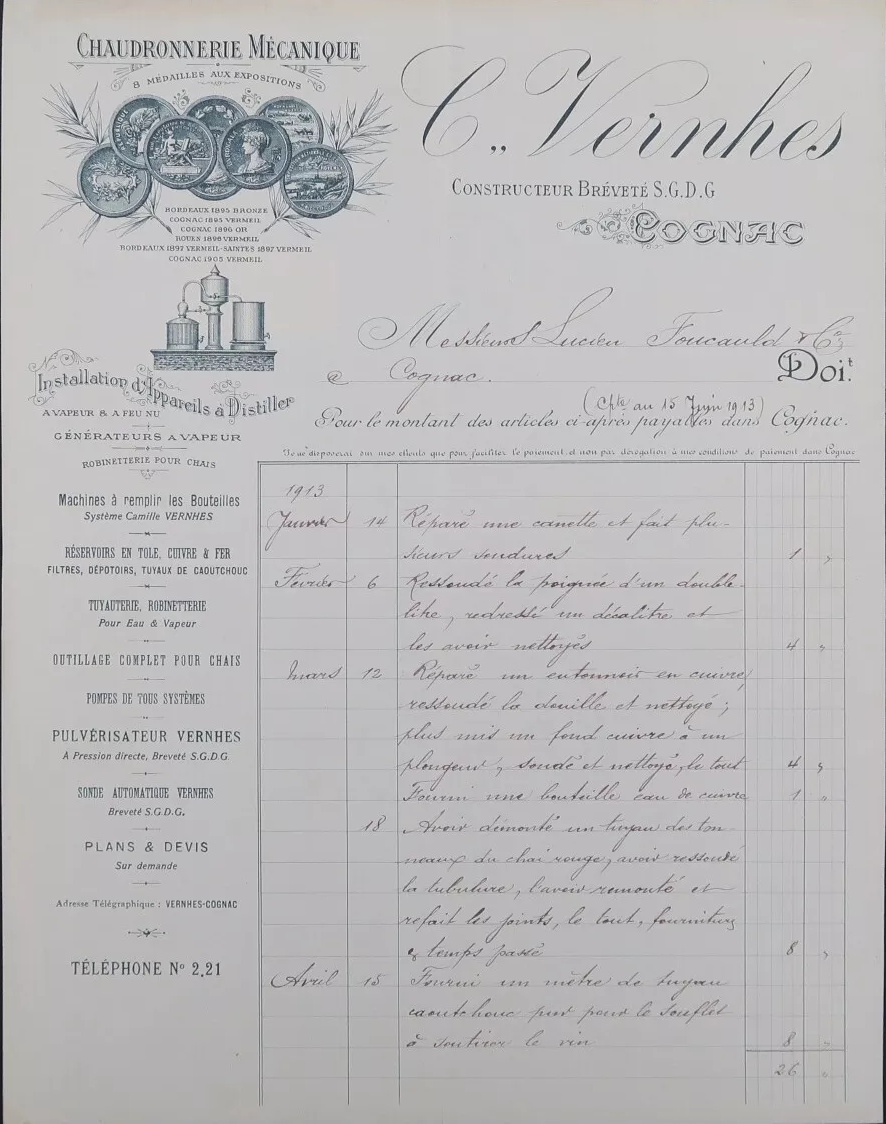 CHAUDRONNERIE MÉCANIQUE
8 MÉDAILLES AUX EXPOSITIONS
BORDEAUX 1895 BRONZE
COGNAC 1895 VERMEIL
COGNAC 1896 OR
ROUEN 1896 VERMEIL
BORDEAUX 1897 VERMEIL-SAINTES 1897 VERMEIL
COGNAC 1905 VERMEIL
C. Vernhes
CONSTRUCTEUR BRÉVETÉ S.G.D.G
COGNAC
Installation d'Appareils à Distiller
A VAPEUR & A FEU NU
GÉNÉRATEURS A VAPEUR
ROBINETTERIE POUR CHAIS
Machines à remplir les Bouteilles
Système Camille VERNHES
RÉSERVOIRS EN TOLE, CUIVRE & FER
FILTRES, DÉPOTOIRS, TUYAUX DE CAOUTCHOUC
TUYAUTERIE, ROBINETTERIE
Pour Eau & Vapeur
OUTILLAGE COMPLET POUR CHAIS
POMPES DE TOUS SYSTÈMES
PULVÉRISATEUR VERNHES
À Pression directe, Breveté S.G.D.G
SONDE AUTOMATIQUE VERNHES
Breveté S.G.D.G.
PLANS & DEVIS
Sur demande
Adresse Télégraphique : VERNHES-COGNAC
TÉLÉPHONE Nº 2,21
Messieurs Lucien Foucauld & Cie
à Cognac. Doit.
(Cpte au 15 Juin 1913)
Pour le montant des articles ci-après payables dans Cognac.
Je ne disposerai sur mes clients que pour faciliter le paiement et non par dérogation à mes conditions de paiement dans Cognac
1913
Janvier 14 Réparé une canette et fait plu-
sieurs soudures 1 "
Février 6 Ressoudé la poignée d'un double-
litre, redressé un décalitre et
les avoir nettoyés 4 "
Mars 12 Réparé un entonnoir en cuivre,
ressoudé la douille et nettoyé ;
plus mis un fond cuivre à un
plongeur, soudé et nettoyé, le tout 4 "
Fourni une bouteille eau de cuivre 1 "
18 Avoir démonté un tuyau des ton-
neaux du chai rouge, avoir ressoudé
la tubulure, l'avoir remonté et
refait les joints, le tout, fourniture
& temps passé 8 "
Avril 15 Fourni un mètre de tuyau
caoutchouc pur pour le soufflet
à soutirer le vin 8 "
26 "